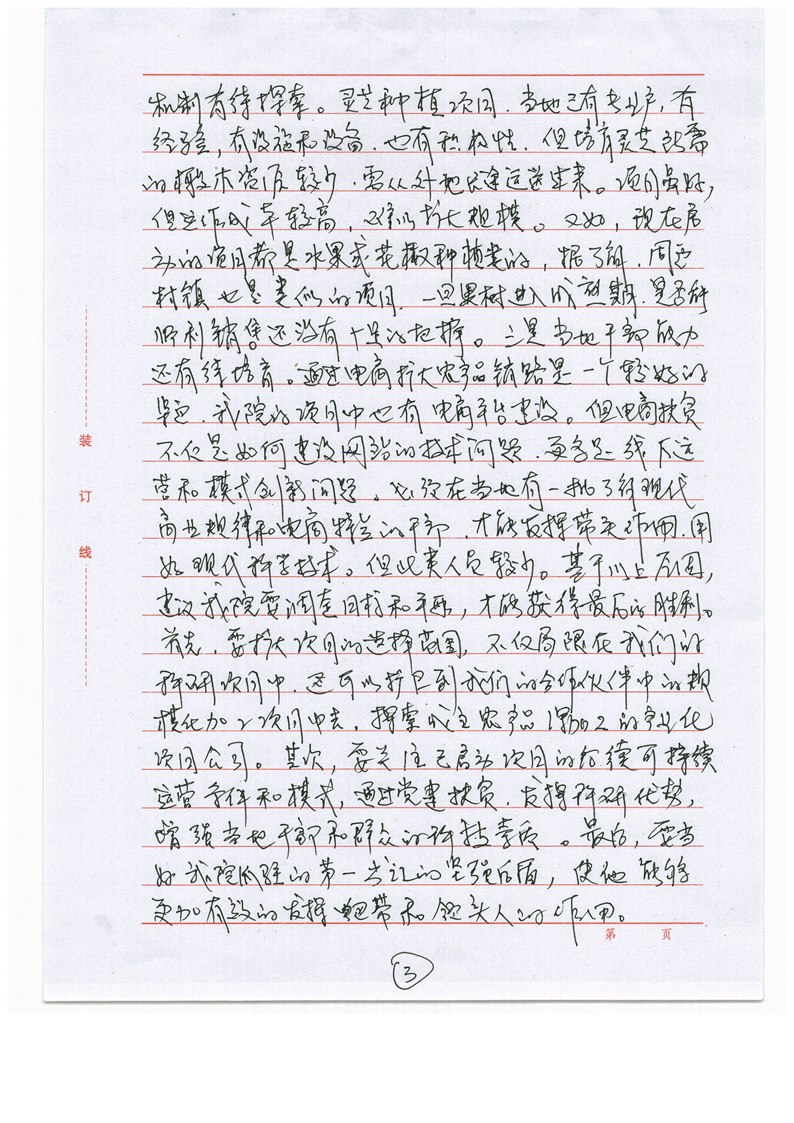 机制有待探索。灵芝种植项目,当地已有专业户,有
经验,有设施和设备,也有积极性,但培育灵芝所需
的椴木资源较少,需从外地长途运送进来。项目虽好,
但运作成本较高,难以扩大规模。又如,现在启
动的项目都是水果或花椒种植类的,据了解,周边
村镇也是类似的项目,一旦果树进入成熟期,是否能
顺利销售还没有十足的把握。三是当地干部能力
还有待培育。通过电商扩大农产品销路是一个较好的
渠道,我院的项目中也有电商平台建设。但电商扶贫
不仅是如何建设网站的技术问题,更多是线下运
营和模式创新问题,必须在当地有一批了解现代
商业规律和电商特点的干部,才能发挥带头作用,用
好现代科学技术。但此类人员较少。基于以上原因,
建议我院要调整目标和手段,才能获得最后的胜利。
首先,要扩大项目的选择范围,不仅局限在我们的
科研项目中,还可以扩展到我们的合作伙伴中的规
模化加工项目中去,探索成立农产品深加工的产业化
项目公司。其次,要关注已启动项目的后续可持续
运营条件和模式,通过党建扶贫,发挥科研优势,
增强当地干部和群众的科技素质。最后,要当
好我院派驻的第一书记的坚强后盾,使他能够
更加有效的发挥纽带和领头人的作用。
第 页
3
装
订
线